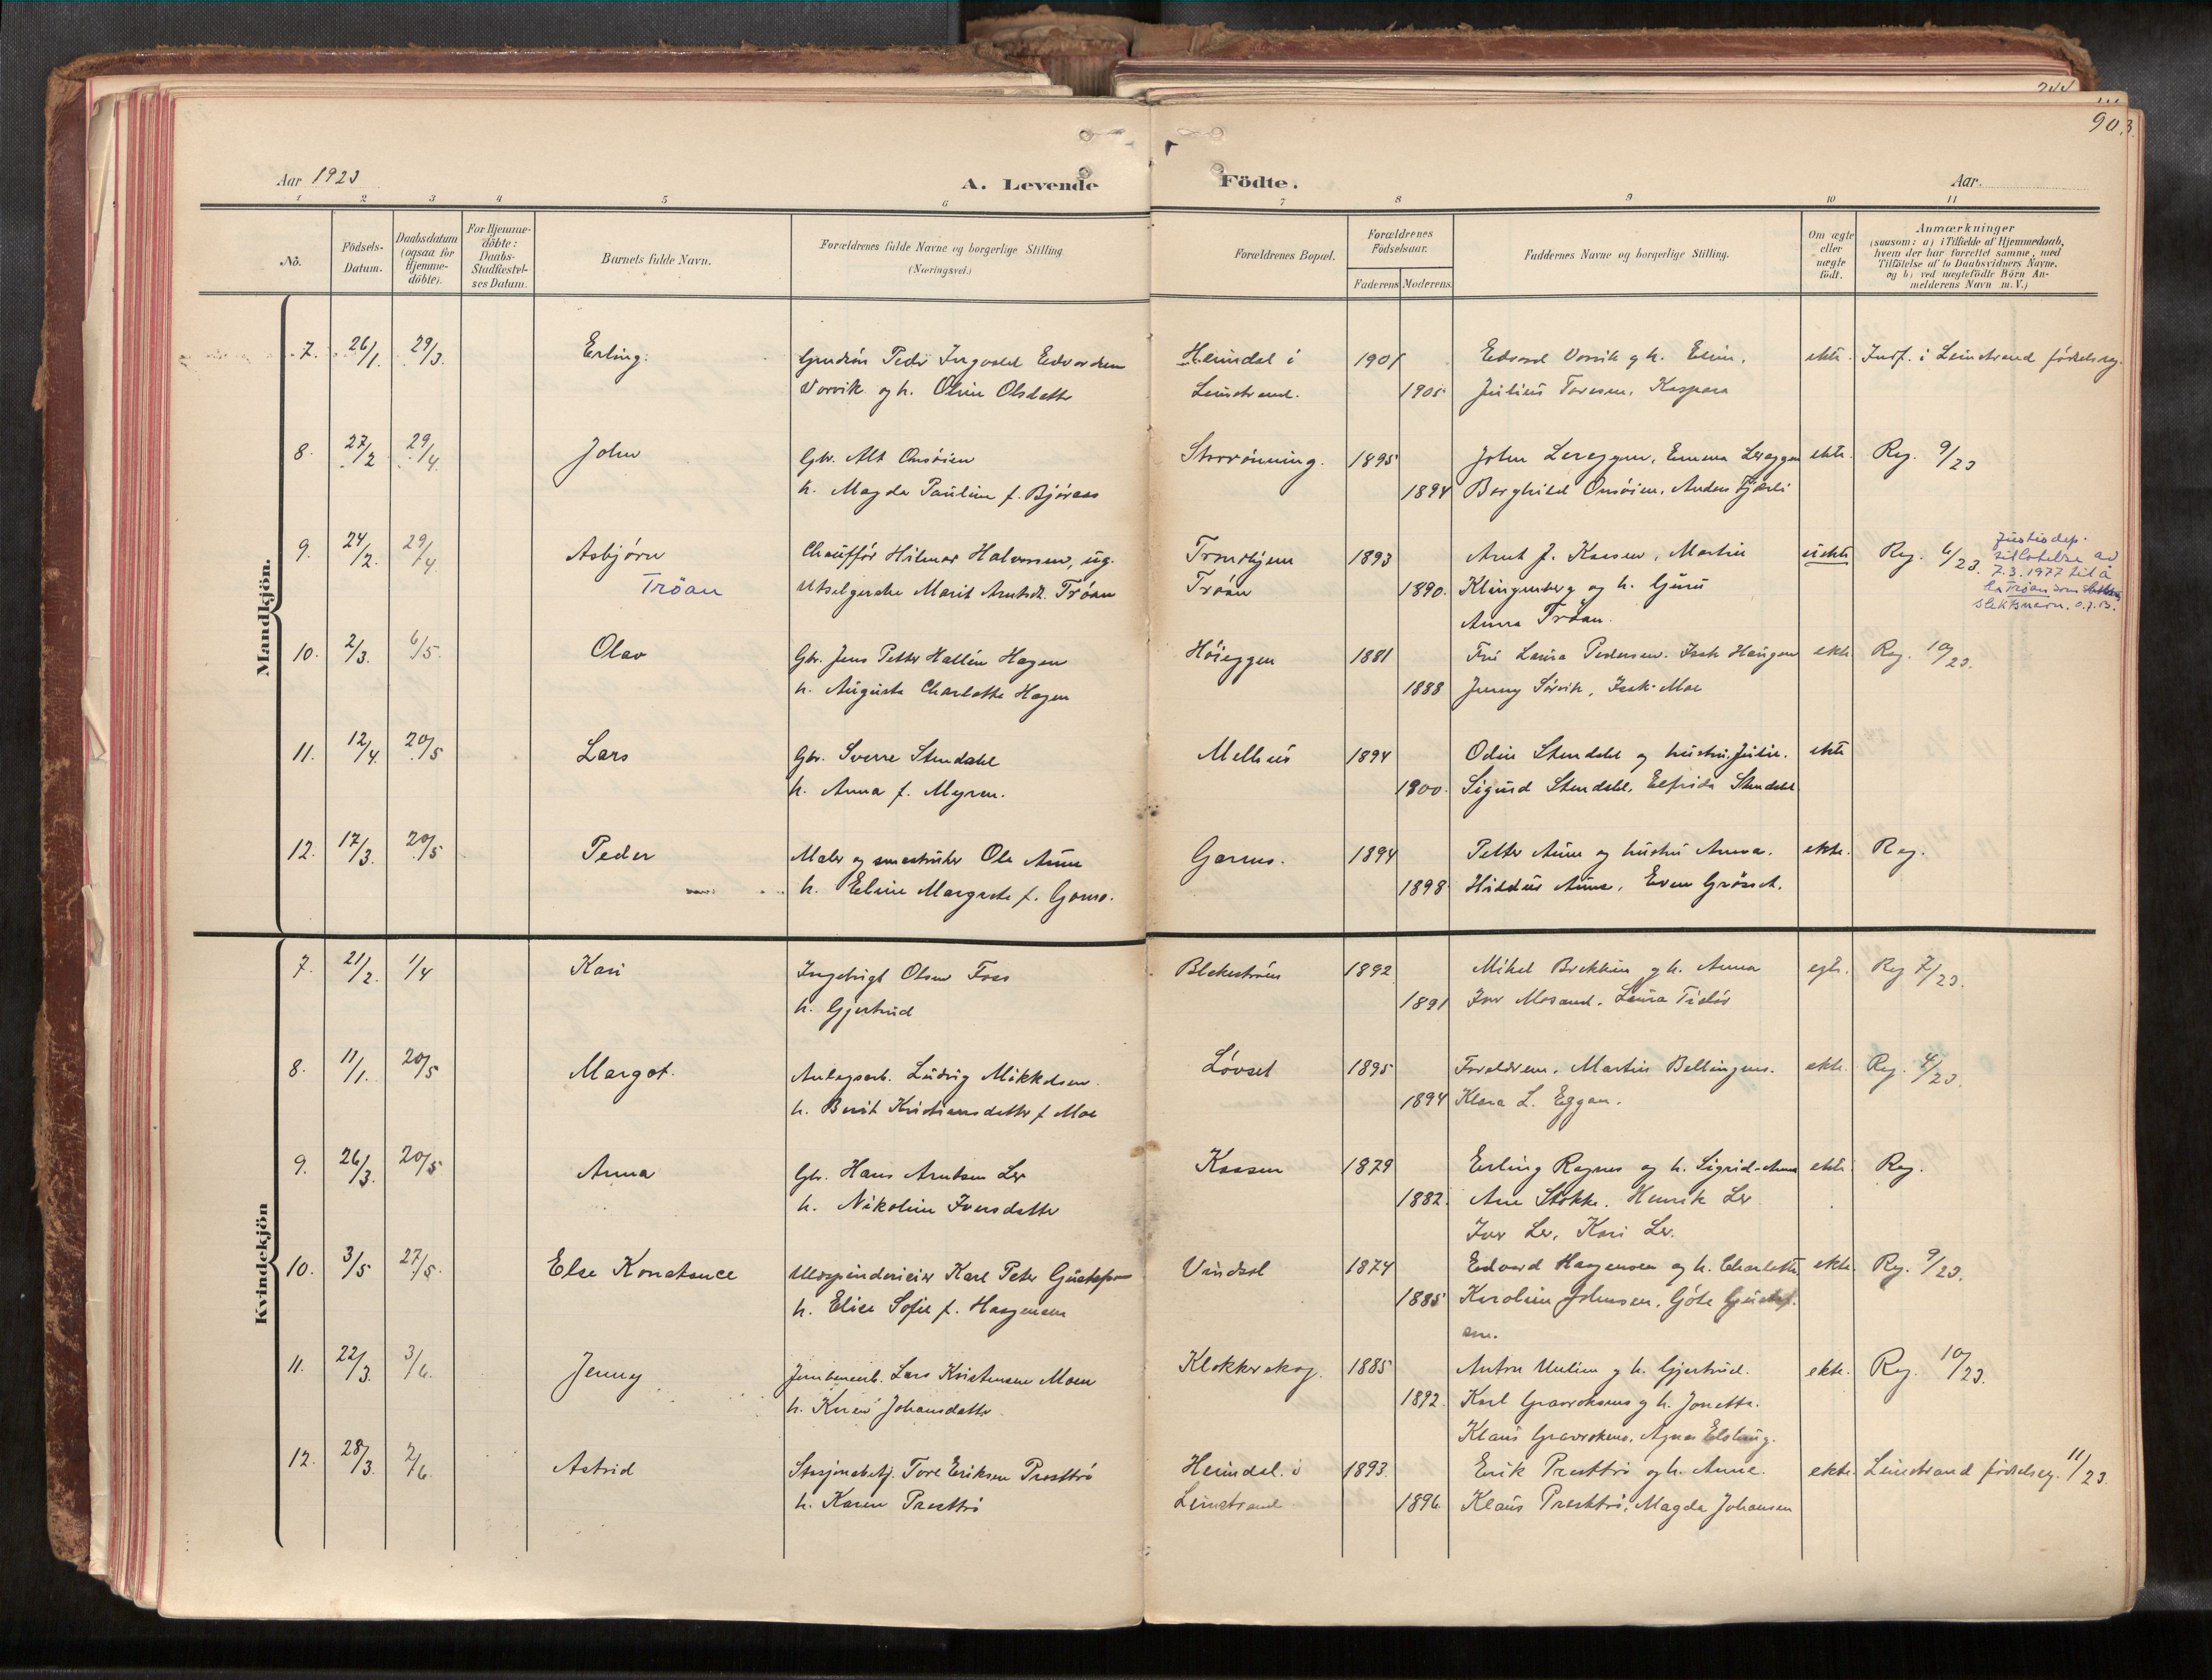 244
90.
Aar 1923
A. Levende Födte.
Aar.
1 2 3 4 5 6 7 8 9 10 11
No.
Födsels-Datum.
Daabsdatum (ogsaa for Hjemme-döbte).
For Hjemme-döbte: Daabs-Stadfæstel-ses Datum.
Barnets fulde Navn.
Forældrenes fulde Navne og borgerlige Stilling (Næringsvei.)
Forældrenes Bopæl.
Forældrenes Födselsaar.
Faderens Moderens
Faddernes Navne og borgerlige Stilling.
Om ægte eller uægte födt.
Anmærkninger
(saasom: a) i Tilfælde af Hjemmedaab,
hvem der har forrettet samme, med
Tilföielse af to Daabsvidners Navne,
og b) ved uægtefödte Börn An-
melderens Navn m. V.)
Mandkjön.
7. 26/1. 29/3. Erling. Peder Ingvald Edvardsen Heimdal i 1901 Edvard Vorvik og h. Elin. ekte. Indf. i Leinstrand fødselsreg.
Vorvik og h. Oline Olsdatter Leinstrand. 1905 Julius Toresen, Kaspara
8. 27/2 29/4. John Gbr. Alt Onsöien Storrönning. 1895 John Lereggen, Emma Lereggen ekte. Reg. 9/23
h. Magda Pauline f. Björaas 1894 Borghild Onsöien, Anders Fjærli
9. 24/2. 29/4. Asbjörn Chaufför Hilmar Halvorsen, ug. Trondhjem 1893 Arnt J. Kaasen, Martin uekte Reg. 6/23. Justisdep.
Tröan Utselgerske Marit Arntsdt. Tröan Tröan 1890. Klingenberg og h. Guru tillatelse av
Anna Tröan. 7.3.1977 til å
ta Tröan som
slektsnavn. O.J.B.
10. 2/3. 6/5. Olav Gbr. Jens Petter Hallén Hagen Höieggen 1881 Fru Laura Pedersen. Isak Haugen ekte. Reg. 10/23.
h. Augusta Charlotte Hagen 1888 Jenny Sörvik, Isak Moe
11. 12/4. 20/5 Lars Gbr. Sverre Stendahl Melhus 1894 Odin Stendahl og hustru Julie. ekte
h. Anna f. Myren. 1900. Sigurd Stendahl, Elfrida Stendahl
12. 17/3. 20/5 Peder Maler og smaabruker Ole Aune Gorms. 1894 Petter Aune og hustru Anna. ekte. Reg.
h. Eline Margrete f. Gomo. 1898 Hilddur Aune, Even Gröset.
Kvindekjön
7. 21/2. 1/4 Kari Ingebrigt Olsen Foss Blekeström 1892 Mikal Brekken og h. Anna egte. Reg 7/23.
h. Gjertrud 1891 Iver Mosand. Laura Tislöv
8. 11/1. 20/5 Margot. Anlegsarb. Ludvig Mikkelsen. Lövset 1895 Foreldrene. Martin Bollingmo. ekte. Reg. 4/23.
h. Berit Kristiansdatter f. Moe 1894 Klara L. Eggen.
9. 26/3. 20/5 Anna Gbr. Hans Arntsen Ler Kaasen 1879 Erling Ragnes og h. Sigrid-Anna ekte Reg.
h. Nikoline Iversdatter 1882. Ane Stokke. Henrik Ler
Iver Ler, Kari Ler.
10. 3/5 27/5. Else Konstance Uldspinderieier Karl Peter Gustafson Vindsal 1874 Edvard Haagensen og h. Charlotte, ekte. Reg. 9/23.
h. Elise Sofie f. Haagensen 1885 Karoline Johnsen, Göte Gustaf-
sen.
11. 22/3. 3/6. Jenny Jernbanearb. Lars Kristensen Moen Klokkerskog. 1885 Anton Melien og h. Gjertrud. ekte. Reg. 10/23.
h. Karen Johansdatter 1892. Karl Gravrokmo og h. Jonetta.
Klaus Gravrokmo, Agnes Elshaug.
12. 28/3. 2/6. Astrid Stasjonsbetj. Tore Eriksen Presttrö Heimdal. i 1893. Erik Presttrö og h. Anne. ekte. Leinstrand fødselsreg. 11/23
h. Karen Presttrö Leinstrand 1896. Klaus Presttrö, Magda Johansen